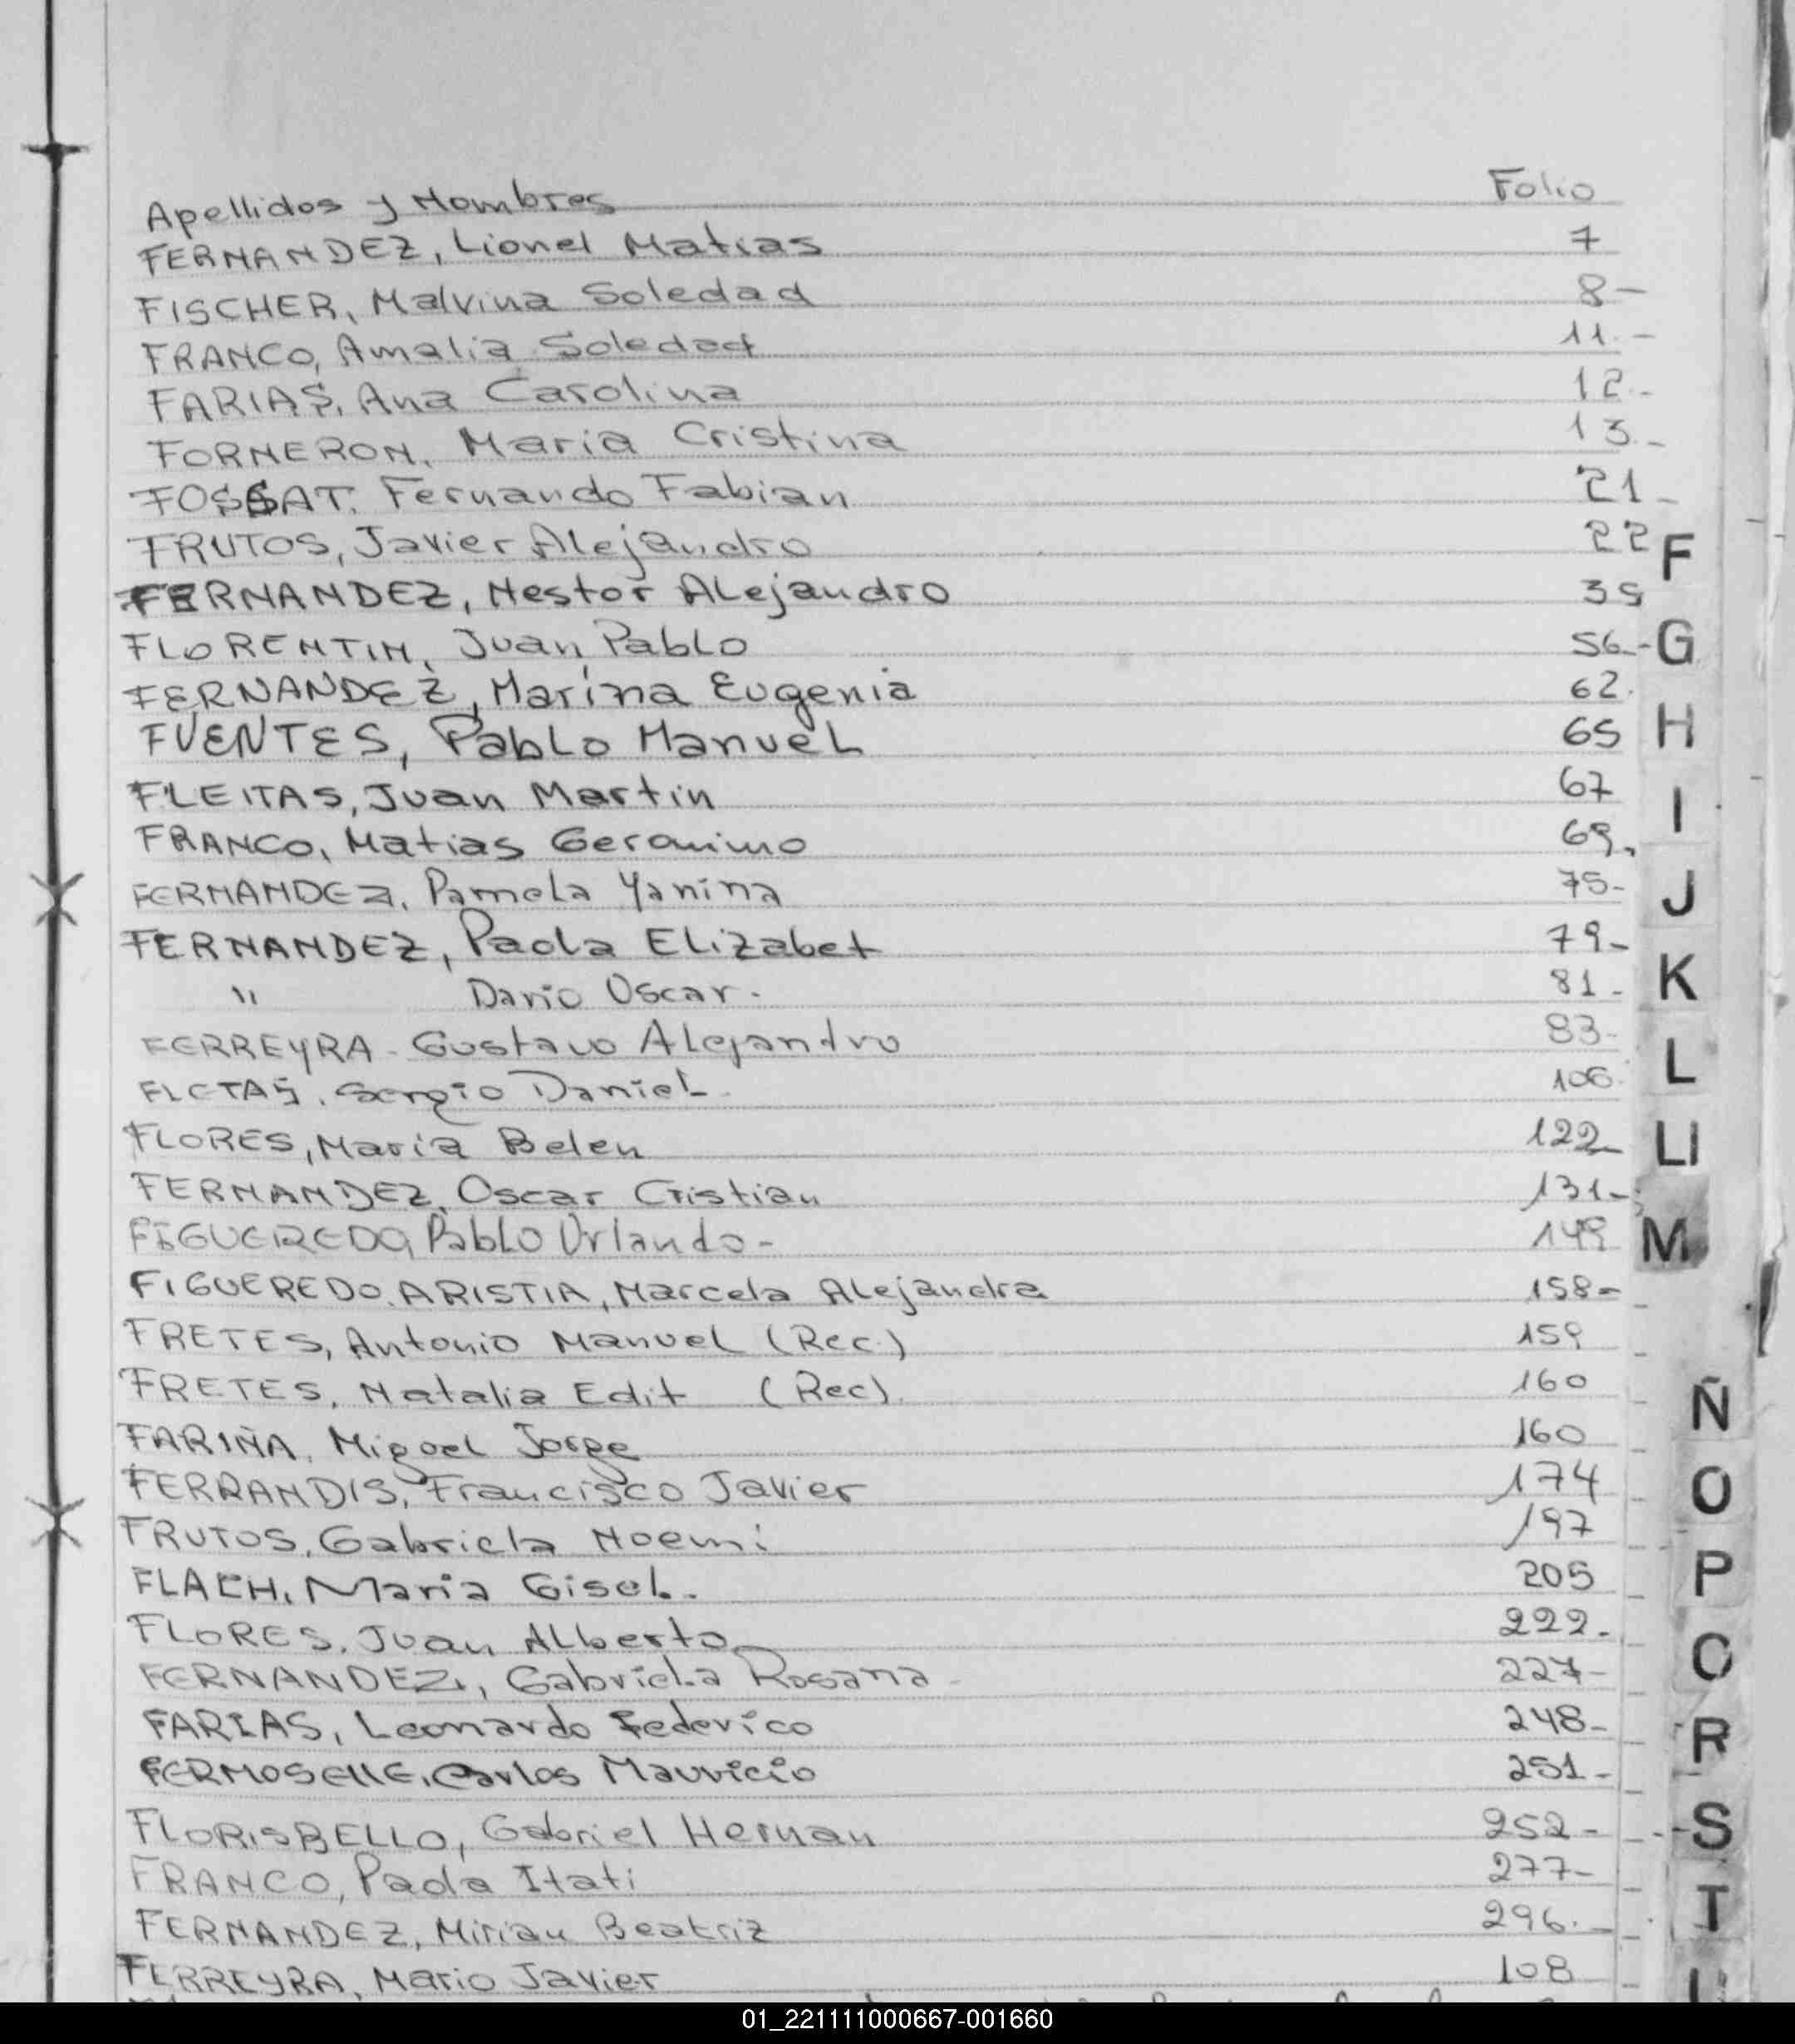 Apellidos y Nombres Folio
FERNANDEZ, Lionel Matias 7
FISCHER, Malvina Soledad 8-
FRANCO, Amalia Soledad 11.-
FARIAS, Ana Carolina 12.-
FORNERON, Maria Cristina 13.-
FOSSAT. Fernando Fabian 21-
FRUTOS, Javier Alejandro 22
FERNANDEZ, Nestor Alejandro 39
FLORENTIN, Juan Pablo 56-
FERNANDEZ, Marina Eugenia 62.
FUENTES, Pablo Manuel 65
FLEITAS, Juan Martin 67
FRANCO, Matias Geronimo 69.
FERNANDEZ, Pamela Yanina 75-
FERNANDEZ, Paola Elizabet 79-
" Dario Oscar. 81-
FERREYRA - Gustavo Alejandro 83-
FLETAS, Sergio Daniel- 106.
FLORES, Maria Belen 122-
FERNANDEZ, Oscar Cristian 131-
FIGUEREDO, Pablo Orlando- 149
FIGUEREDO, ARISTIA, Marcela Alejandra 158-
FRETES, Antonio Manuel (Rec.) 159
FRETES, Natalia Edit (Rec). 160
FARIÑA, Miguel Jorge 160
FERRANDIS, Francisco Javier 174
FRUTOS, Gabriela Noemi 197
FLACH, Maria Gisel. 205
FLORES, Juan Alberto 222-
FERNANDEZ, Gabriela Rosana- 227-
FARIAS, Leonardo Federico 248-
FERMOSELLE, Carlos Mauricio 251-
FLORISBELLO, Gabriel Hernan 252-
FRANCO, Paola Itati 277-
FERNANDEZ, Mirian Beatriz 296.
FERREYRA, Mario Javier 108
F
G
H
I
J
K
L
Ll
M
Ñ
O
P
R
S
T
01_221111000667-001660